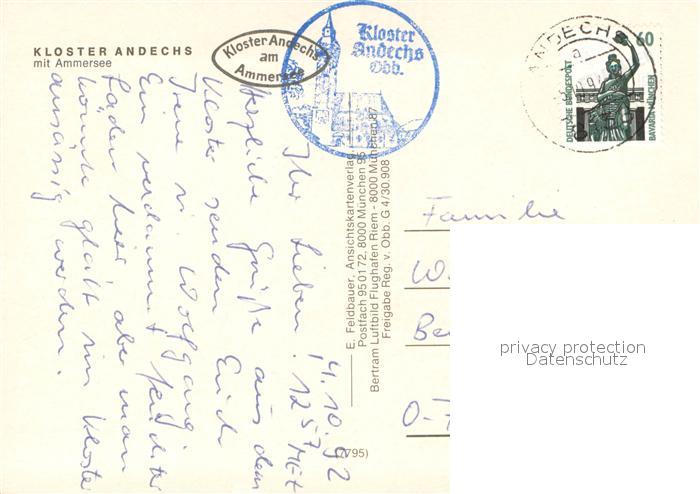 KLOSTER ANDECHS
mit Ammersee
Kloster Andechs
am
Ammersee
Kloster
Andechs
Obb.
ANDECHS
60
DEUTSCHE BUNDESPOST
BAVARIA MÜNCHEN
4.10.92
Ihr Lieben!
Herzliche Grüße aus dem
Kloster senden Euch
Irene u. Wolfgang
Ein verdammt feuchter
Laden hier aber man
könnte glatt im Kloster
ansässig werden.
E. Feldbauer, Ansichtskartenverlag,
Postfach 95 01 72, 8000 München 95
Bertram Luftbild Flughafen Riem - 8000 München 87
Freigabe Reg. v. Obb. G 4/30.908
(7795)
Familie
W
Be
O-
privacy protection
Datenschutz